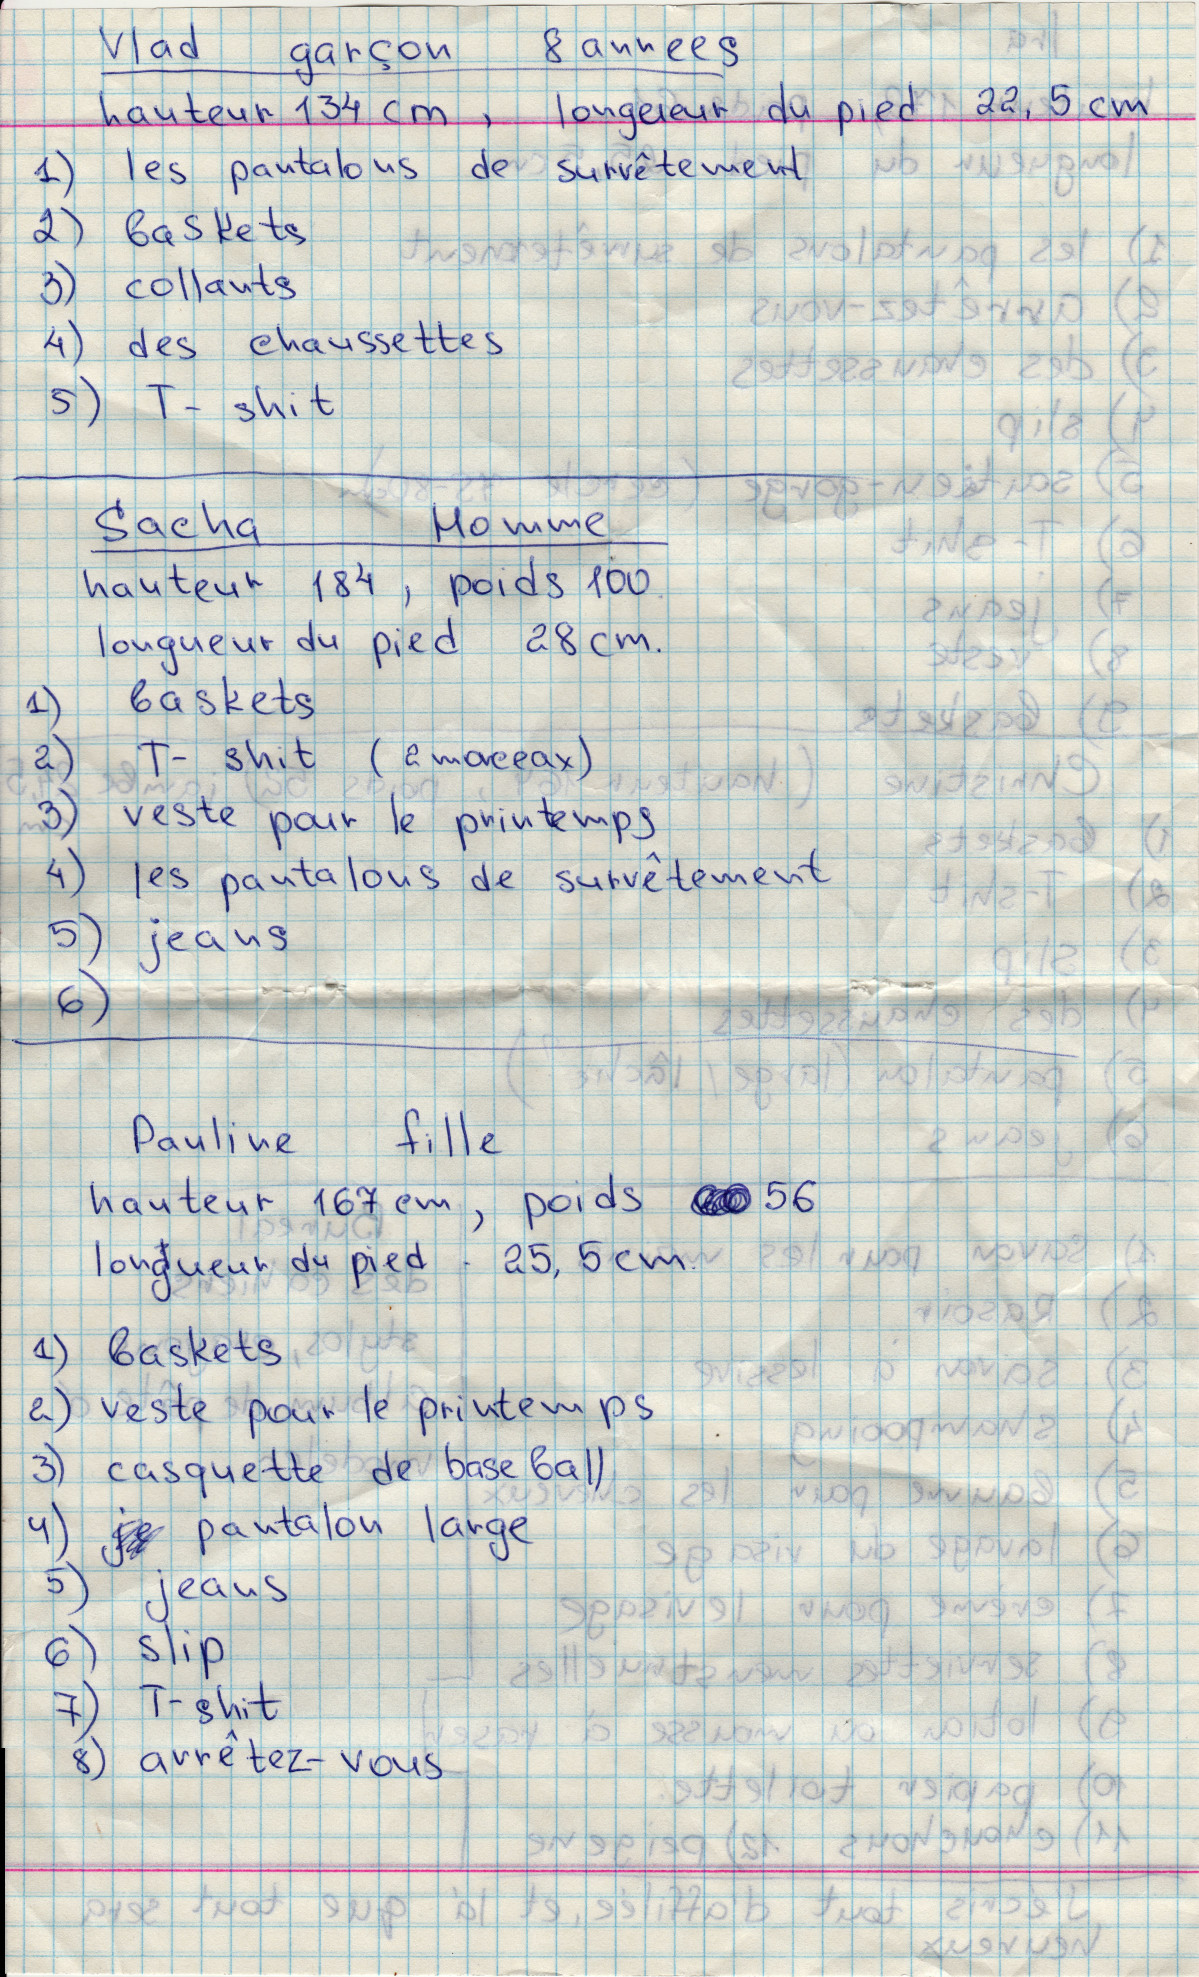 Vlad garçon 8 annees
hauteur 134 cm, longueur du pied 22,5 cm
1) les pantalons de survêtement
2) baskets
3) collants
4) des chaussettes
5) T- shit
Sacha Homme
hauteur 184, poids 100
longueur du pied 28 cm.
1) baskets
2) T- shit (2 morceax)
3) veste pour le printemps
4) les pantalons de survêtement
5) jeans
6)
Pauline fille
hauteur 167 cm, poids 56
longueur du pied. 25,5 cm.
1) baskets
2) veste pour le printemps
3) casquette de baseball
4) pantalon large
5) jeans
6) slip
7) T-shit
8) arrêtez-vous